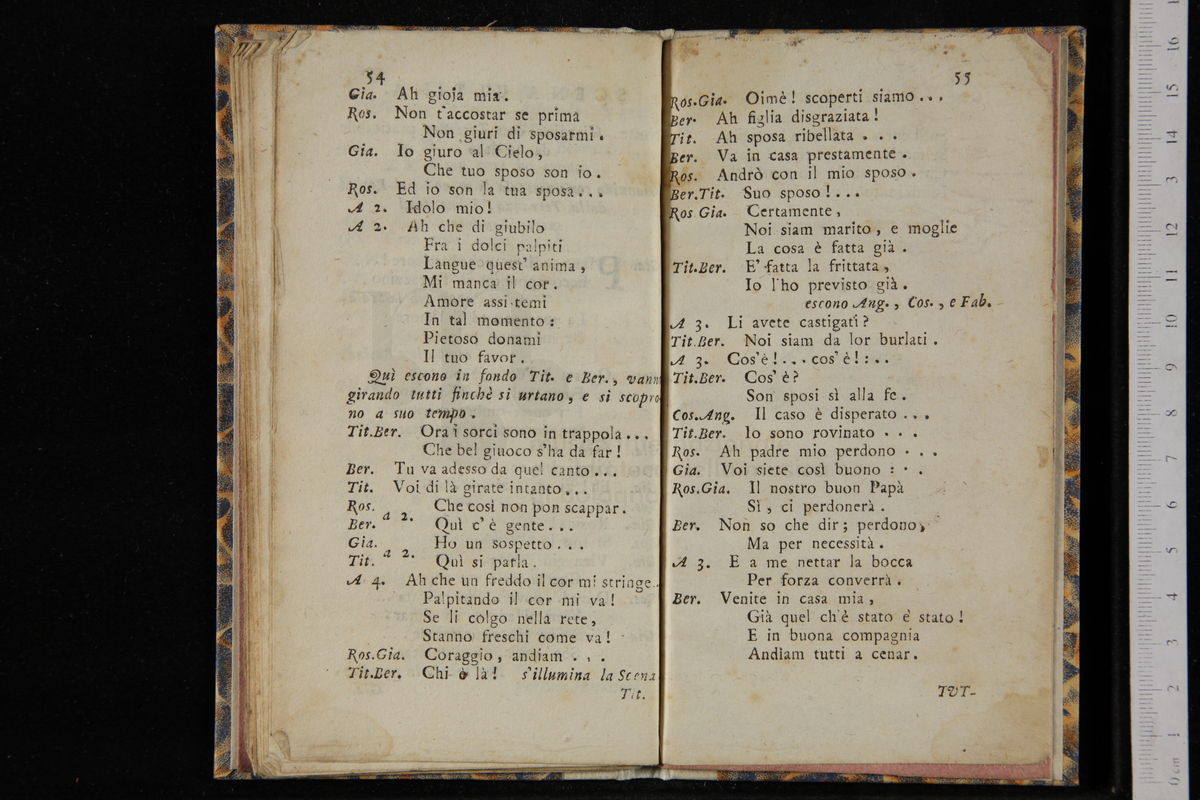 54
Gia. Ah gioja mia.
Ros. Non t'accostar se prima
Non giuri di sposarmi.
Gia. Io giuro al Cielo,
Che tuo sposo son io.
Ros. Ed io son la tua sposa...
A 2. Idolo mio!
A 2. Ah che di giubilo
Fra i dolci palpiti
Langue quest' anima,
Mi manca il cor.
Amore assistemi
In tal momento:
Pietoso donami
Il tuo favor.
Quì escono in fondo Tit. e Ber., vanno
girando tutti finchè si urtano, e si scopro-
no a suo tempo.
Tit.Ber. Ora i sorci sono in trappola...
Che bel giuoco s'ha da far!
Ber. Tu va adesso da quel canto...
Tit. Voi di là girate intanto...
Ros. a 2. Che così non pon scappar.
Ber. Quì c'è gente...
Gia. a 2. Ho un sospetto...
Tit. Quì si parla.
A 4. Ah che un freddo il cor mi stringe..
Palpitando il cor mi va!
Se li colgo nella rete,
Stanno freschi come va!
Ros.Gia. Coraggio, andiam...
Tit.Ber. Chi è là! s'illumina la Scena
Tit.
55
Ros.Gia. Oimè! scoperti siamo...
Ber. Ah figlia disgraziata!
Tit. Ah sposa ribellata...
Ber. Va in casa prestamente.
Ros. Andrò con il mio sposo.
Ber.Tit. Suo sposo!...
Ros Gia. Certamente,
Noi siam marito, e moglie
La cosa è fatta già.
Tit.Ber. E' fatta la frittata,
Io l'ho previsto già.
escono Ang., Cos., e Fab.
A 3. Li avete castigati?
Tit.Ber. Noi siam da lor burlati.
A 3. Cos'è!... cos'è!:..
Tit.Ber. Cos'è?
Son sposi sì alla fe.
Cos.Ang. Il caso è disperato...
Tit.Ber. Io sono rovinato...
Ros. Ah padre mio perdono...
Gia. Voi siete così buono:..
Ros.Gia. Il nostro buon Papà
Sì, ci perdonerà.
Ber. Non so che dir; perdono,
Ma per necessità.
A 3. E a me nettar la bocca
Per forza converrà.
Ber. Venite in casa mia,
Già quel ch'è stato è stato!
E in buona compagnia
Andiam tutti a cenar.
TUT-